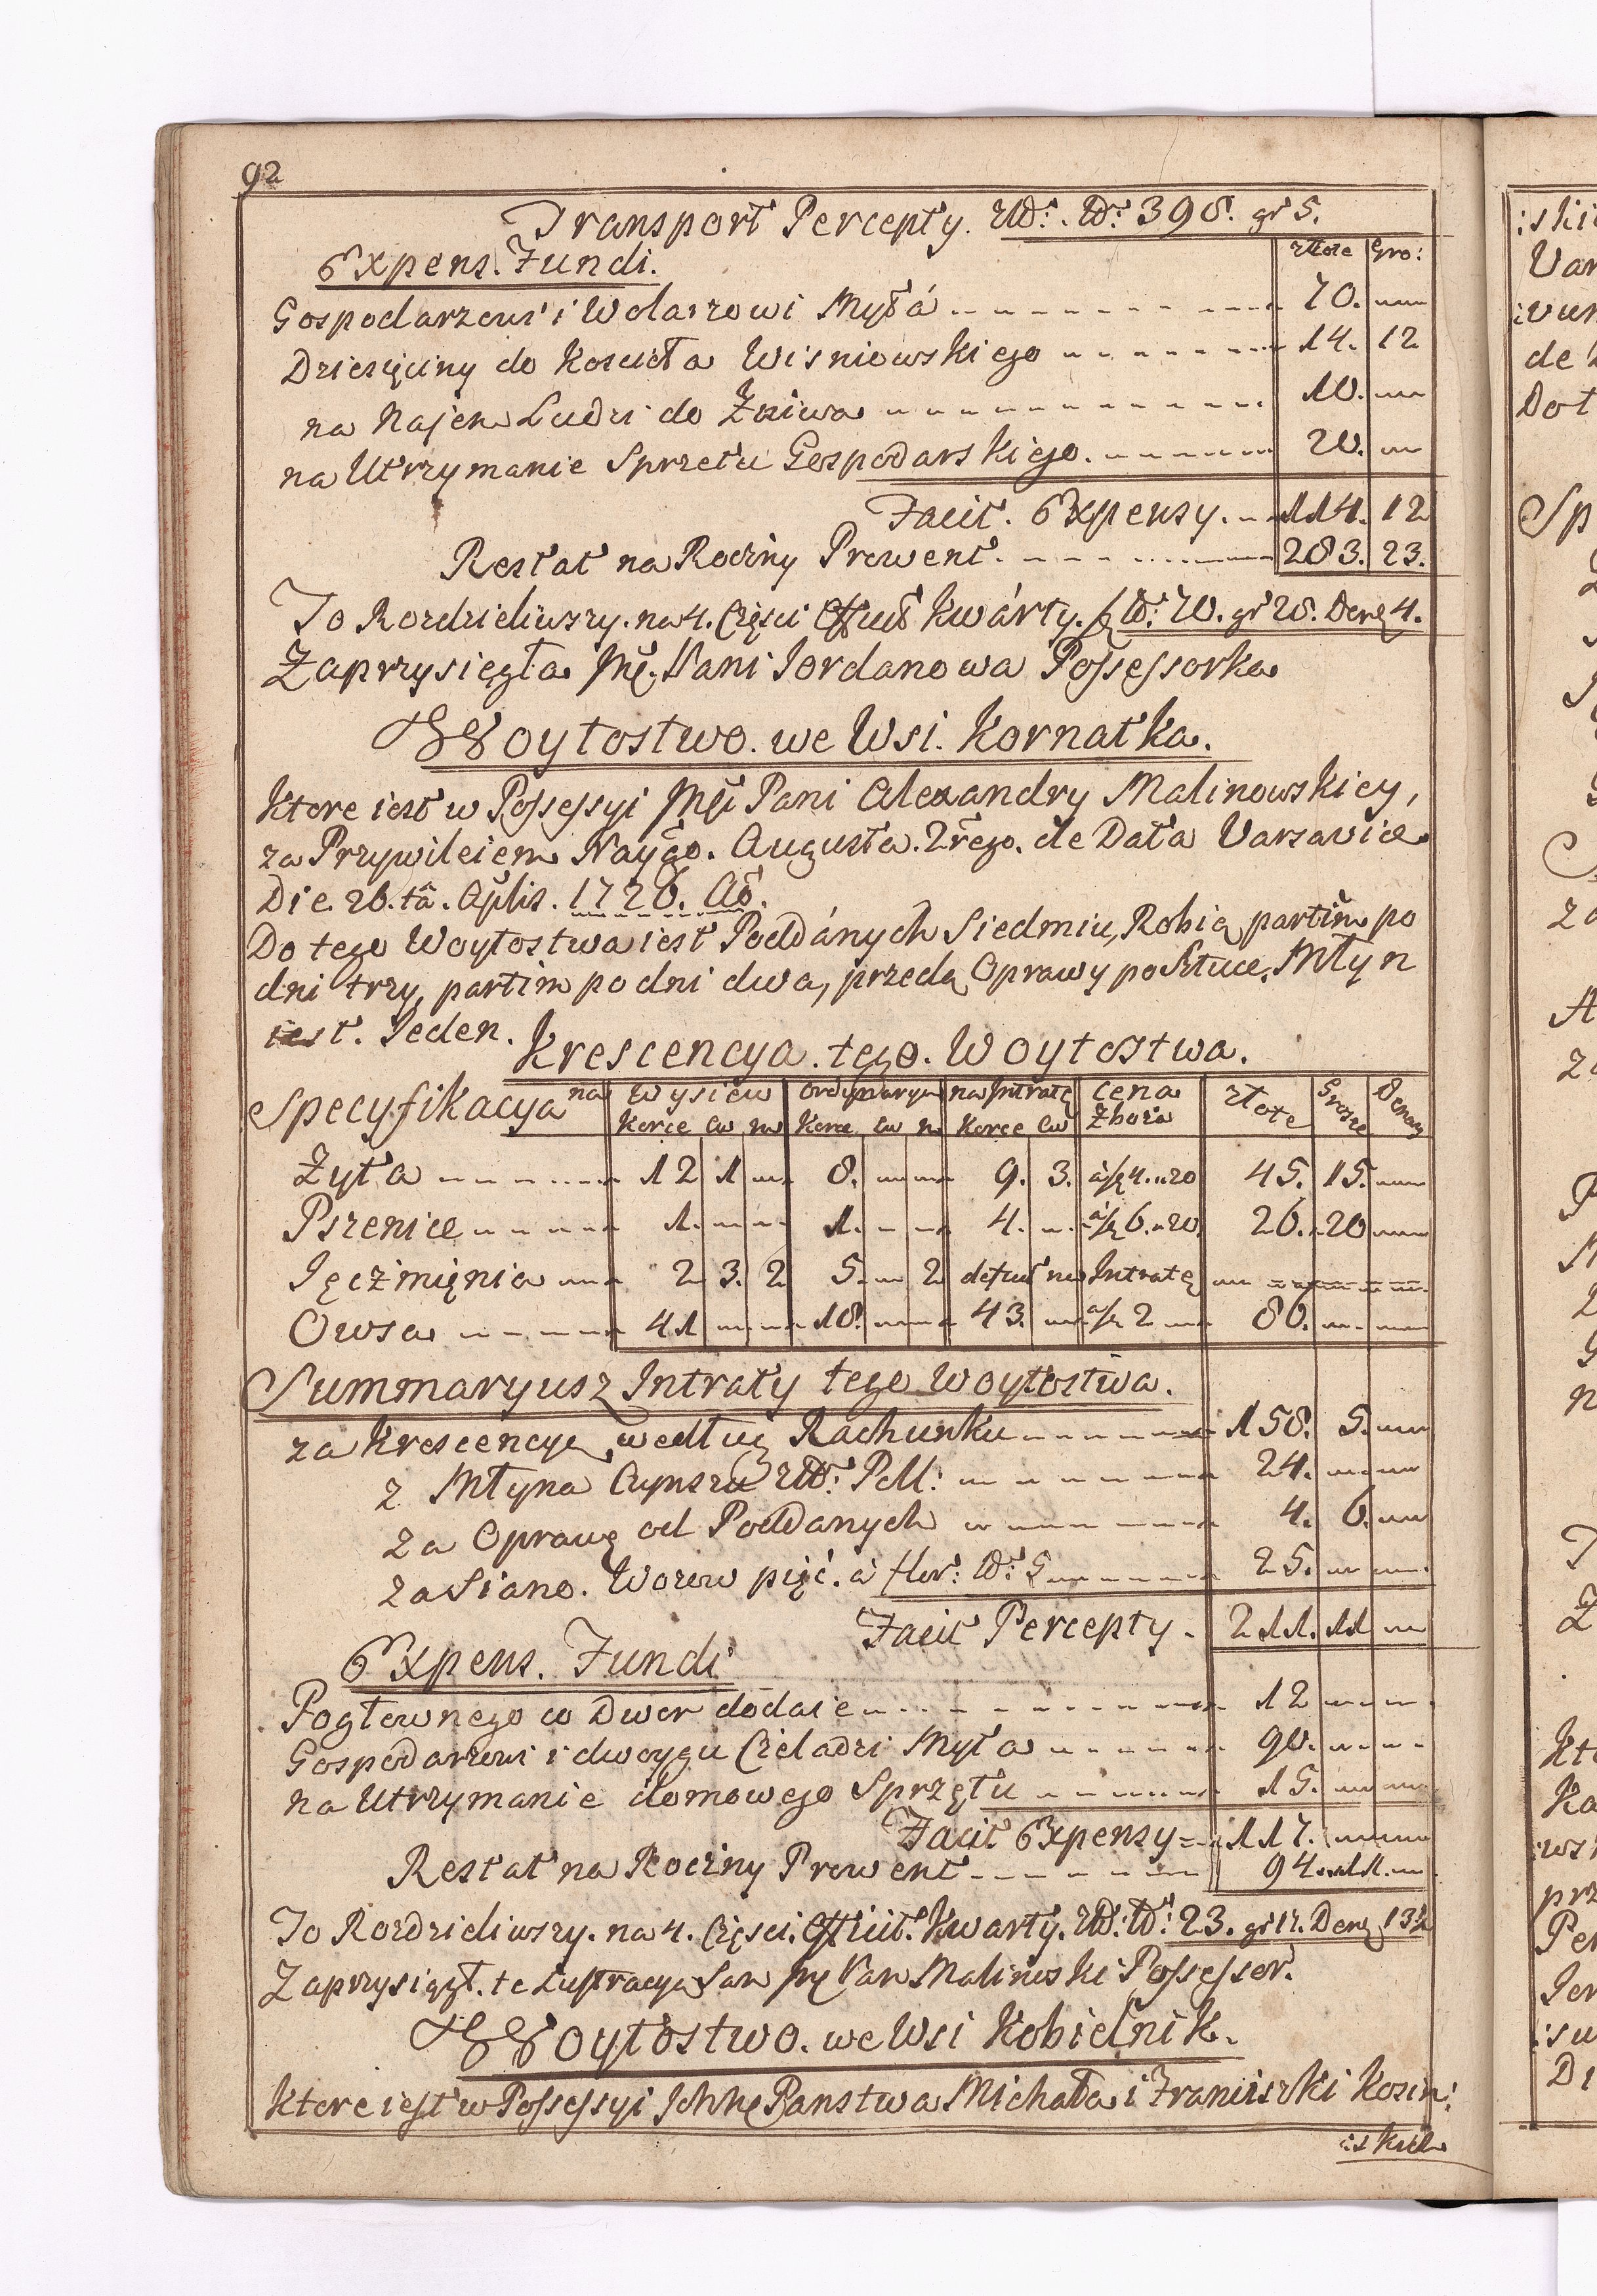 92
Transport Percepty. Złł: Pł: 398. gr 5.
Expens. Fundi.
złote Gro:
Gospodarzowi i Wolarzowi Myta 70.
Dziesięciny do Kościoła Wisniowskiego 14. 12
na Najem Ludzi do Żniwa 10.
na Utrzymanie Sprzetu Gospodarskiego. 20.
Facit. Expensy. 114. 12
Restat na Roczny Prowent. 283. 23.
To Rozdzieliwszy. na 4. Części Efficit Kwárty. 70. gr 28. Den 4.
Zaprzysięgła Pani Iordanowa Possessorka
Woytostwo. we Wsi. Kornatka.
Ktore iest w Possessyi Pani Alexandry Malinowskiey,
za Przywileiem Nayго. Augusta. 2řego. de Data Varsaviæ
Die. 26. tâ. Aplis. 1726. Aõ.
Do tego Woytostwa iest Poddánych Siedmiu, Robią partim po
dni trzy, partim po dni dwa, przedą Oprawy po Sztuce, Młyn
iest. Ieden.
Krescencya. tego. Woytostwa.
Specyfikacya na Wysiew Ordynaryą na Intratę Cena Zboża złote Grosze Denary
Korce Cw Korce Cw Korce Cw
Żyta 12 1 8. 9. 3. 4. 20 45. 15.
Pszenice 1. 1. 4. 6. 20 26. 20
Ięczmięnia 2 3. 2 5. 2 Intratę
Owsa 41 18. 43. 2 86.
Summaryusz Intraty tego Woytostwa.
za Krescencyę według Rachunku 158. 5.
z Młyna Czynszu Złł: Poll: 24.
za Oprawę od Poddanych 4. 6.
za Siano. Wozow pięć. à flor: Pł: 5 25.
Facit Percepty. 211. 11
Expens. Fundi
Pogłownego co Dwor dodaie 12
Gospodarzowi i dwoygu Czeladzi Myta 90.
na Utrzymanie domowego Sprzętu 15.
Facit Expensy 117.
Restat na Roczny Prowent 94. 11.
To Rozdzieliwszy. na 4. Części. Efficit. Kwarty. Złł: Pł: 23. gr 17. Den 13½
Zaprzysiągł. te Lustracyą Sam Pan Malinowski Possessor.
Woytostwo. we Wsi Kobielnik.
Ktore iest w Possessyi Panstwa Michała i Franciszki Kozin:
:skich